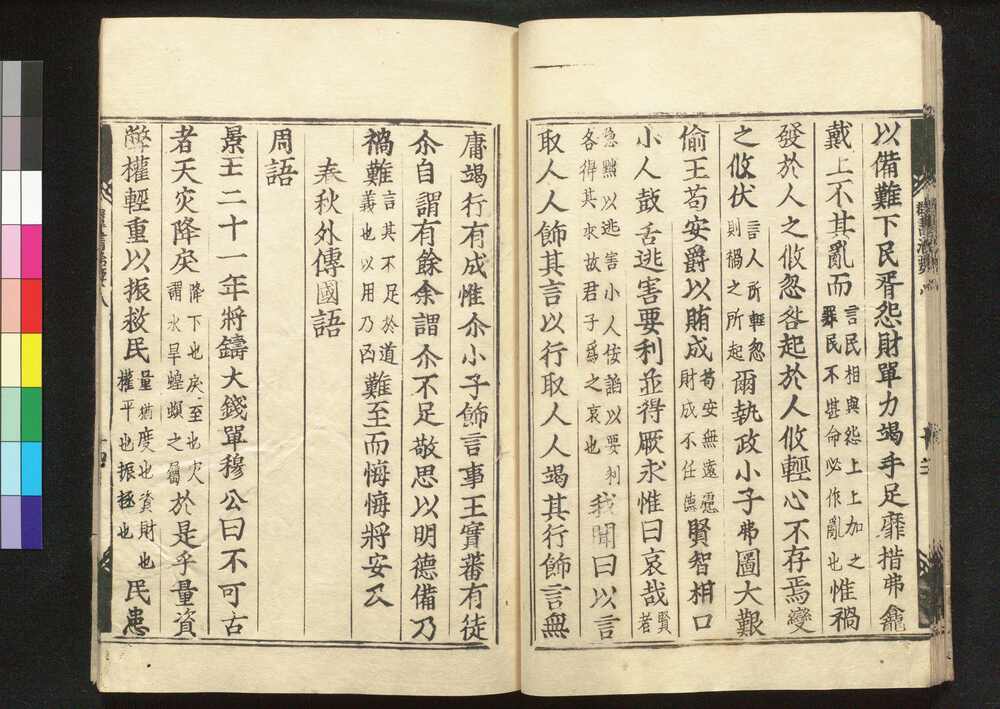 以備難下民胥怨財單力竭手足靡措弗龕
戴上不其亂而言民相與怨上上加之罪民不堪命必作亂也惟禍
發於人之攸忽咎起於人攸輕心不存焉變
之攸伏言人所輕忽則禍之所起爾執政小子弗圖大艱
偷王苟安爵以賄成苟安無遠慮財成不任德賢智柤口
小人鼓舌逃害要利並得厥求惟曰哀哉賢者
急黠以逃害小人佞謟以要利各得其求故君子爲之哀也我聞曰以言
取人人飾其言以行取人人竭其行飾言無
庸竭行有成惟尒小子飾言事王寔蕃有徒
尒自謂有餘余謂尒不足敬思以明德備乃
禍難言其不足於道義也以用乃凶難至而悔悔將安及
春秋外傳國語
周語
景王二十一年將鑄大錢單穆公曰不可古
者天灾降戾降下也戾至也灾謂水旱蝗螟之屬於是乎量資
弊權輕重以振救民量猶度也資財也權平也振拯也民患